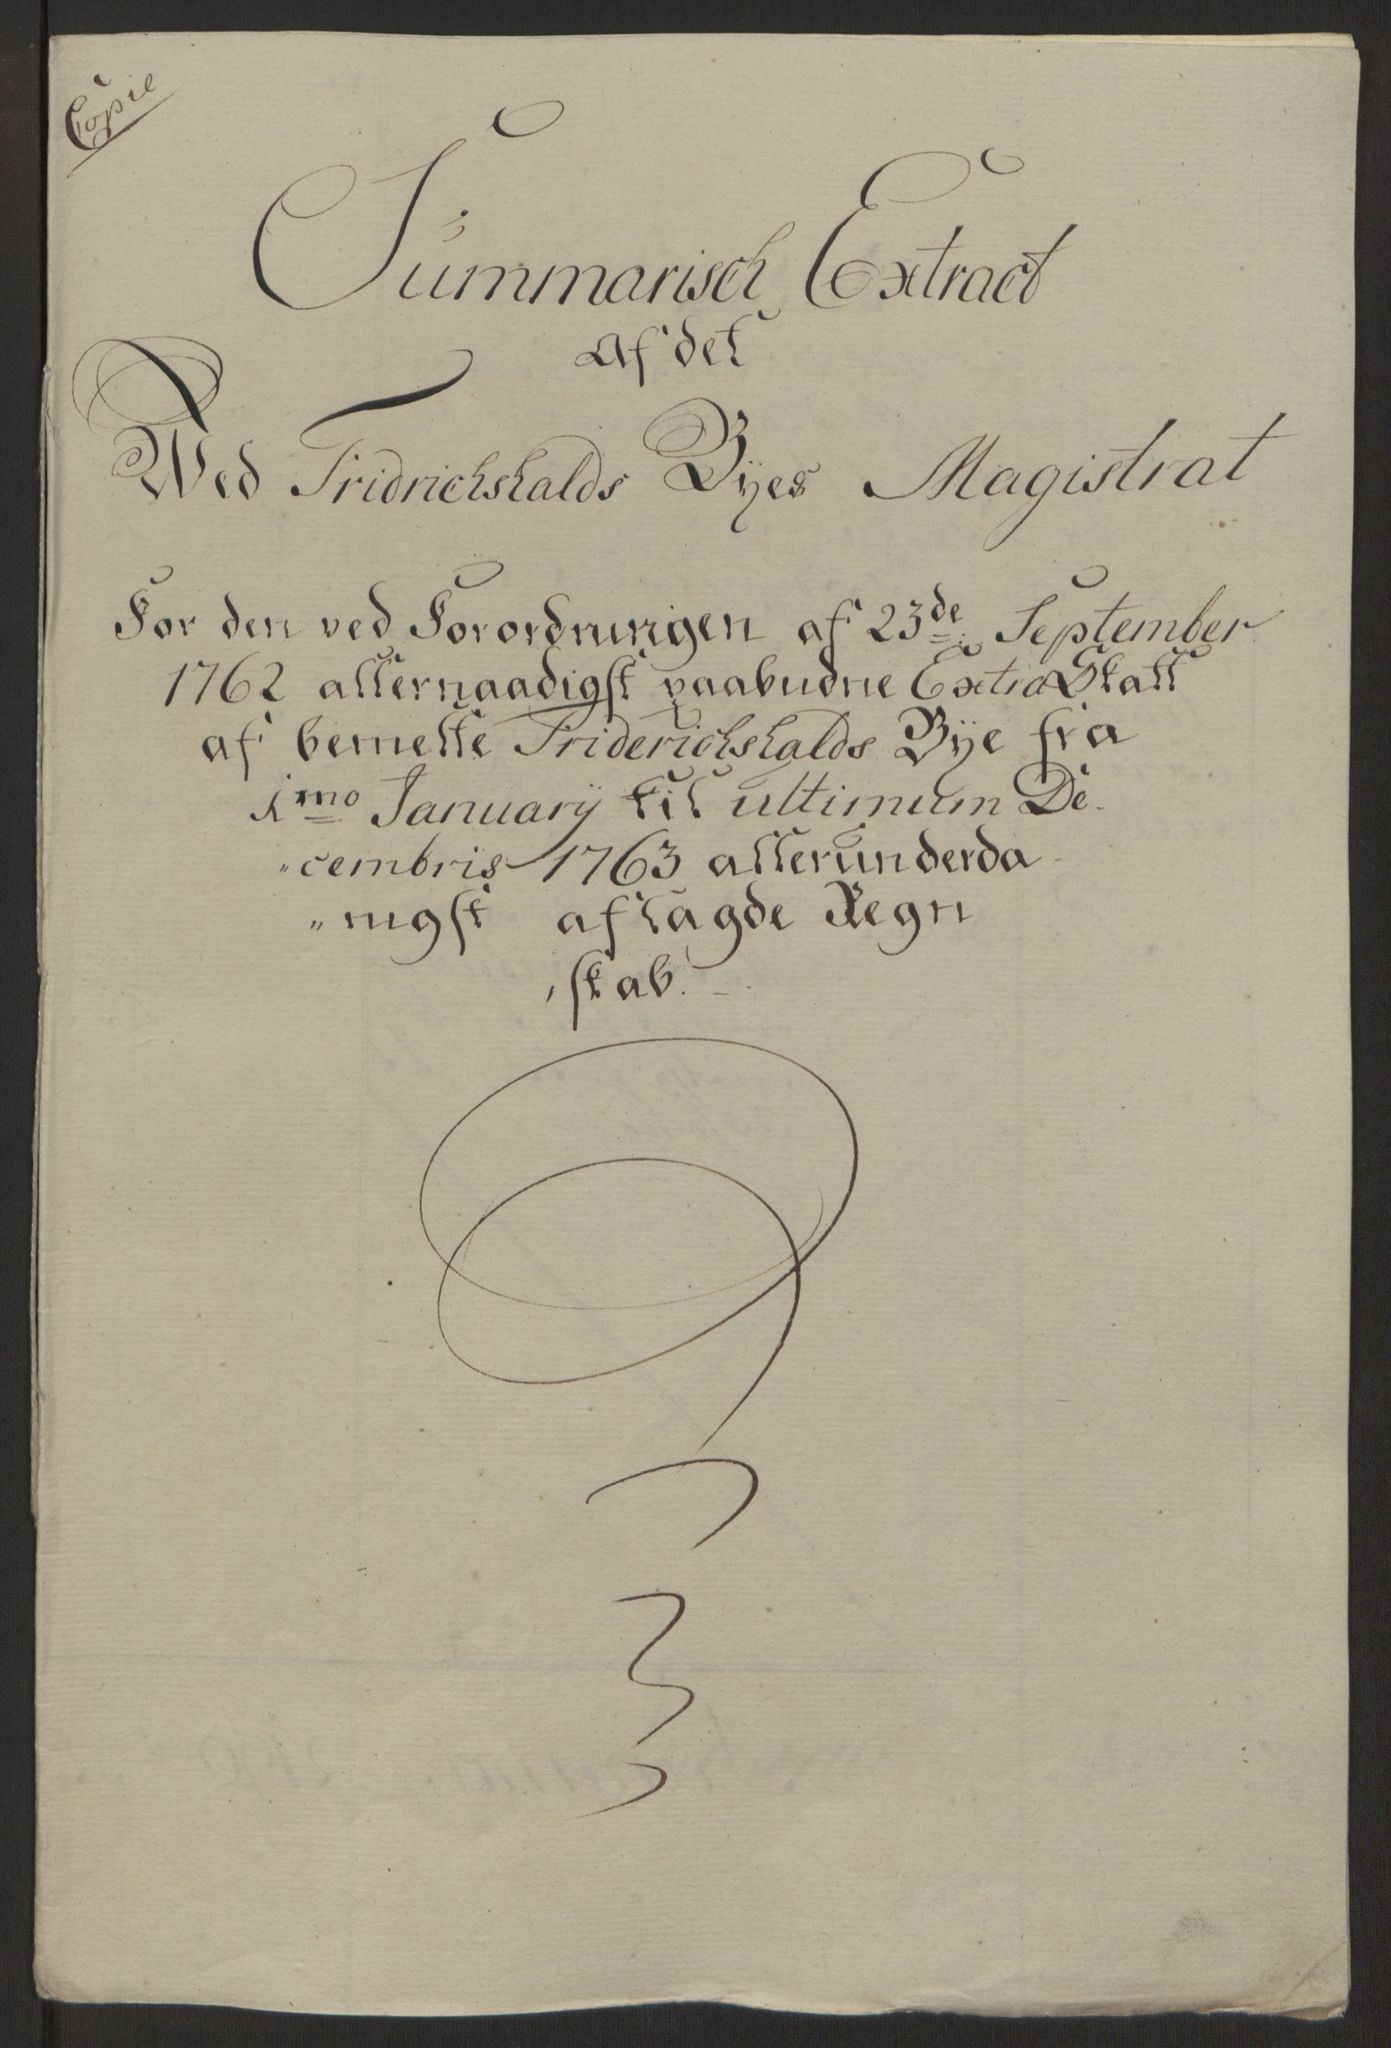 Copie
Summarisch Extract
Af det
Wed Fridrichshalds Byes Magistrat
For den ved Forordningen af 23de September
1762 allernaadigst paabudne Extra Skatt
af bemelte Friderichshalds Bye fra
1mo Januarij til ultimum De-
"cembris 1763 allerunderda-
"nigst aflagde Regn
skab.